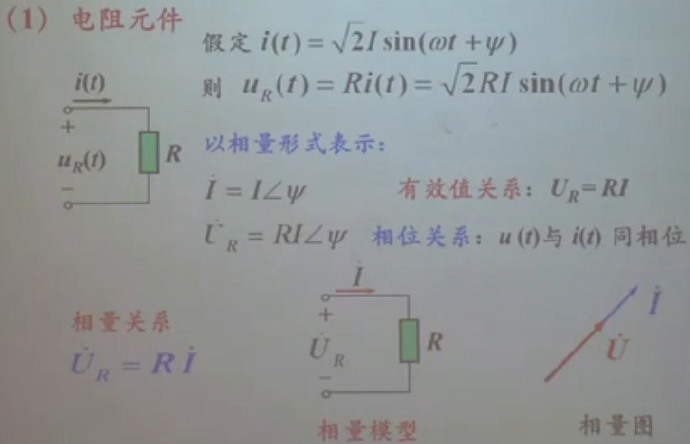 (1) 电阻元件
假定 i(t) = √2I sin(ωt + ψ)
则 u_R(t) = Ri(t) = √2RI sin(ωt + ψ)
i(t)
+
u_R(t)
−
R
以相量形式表示:
İ = I∠ψ 有效值关系: U_R = RI
U̇_R = RI∠ψ 相位关系: u (t)与 i(t) 同相位
相量关系
U̇_R = R İ
İ
+
U̇_R
−
R
相量模型
İ
U̇
相量图